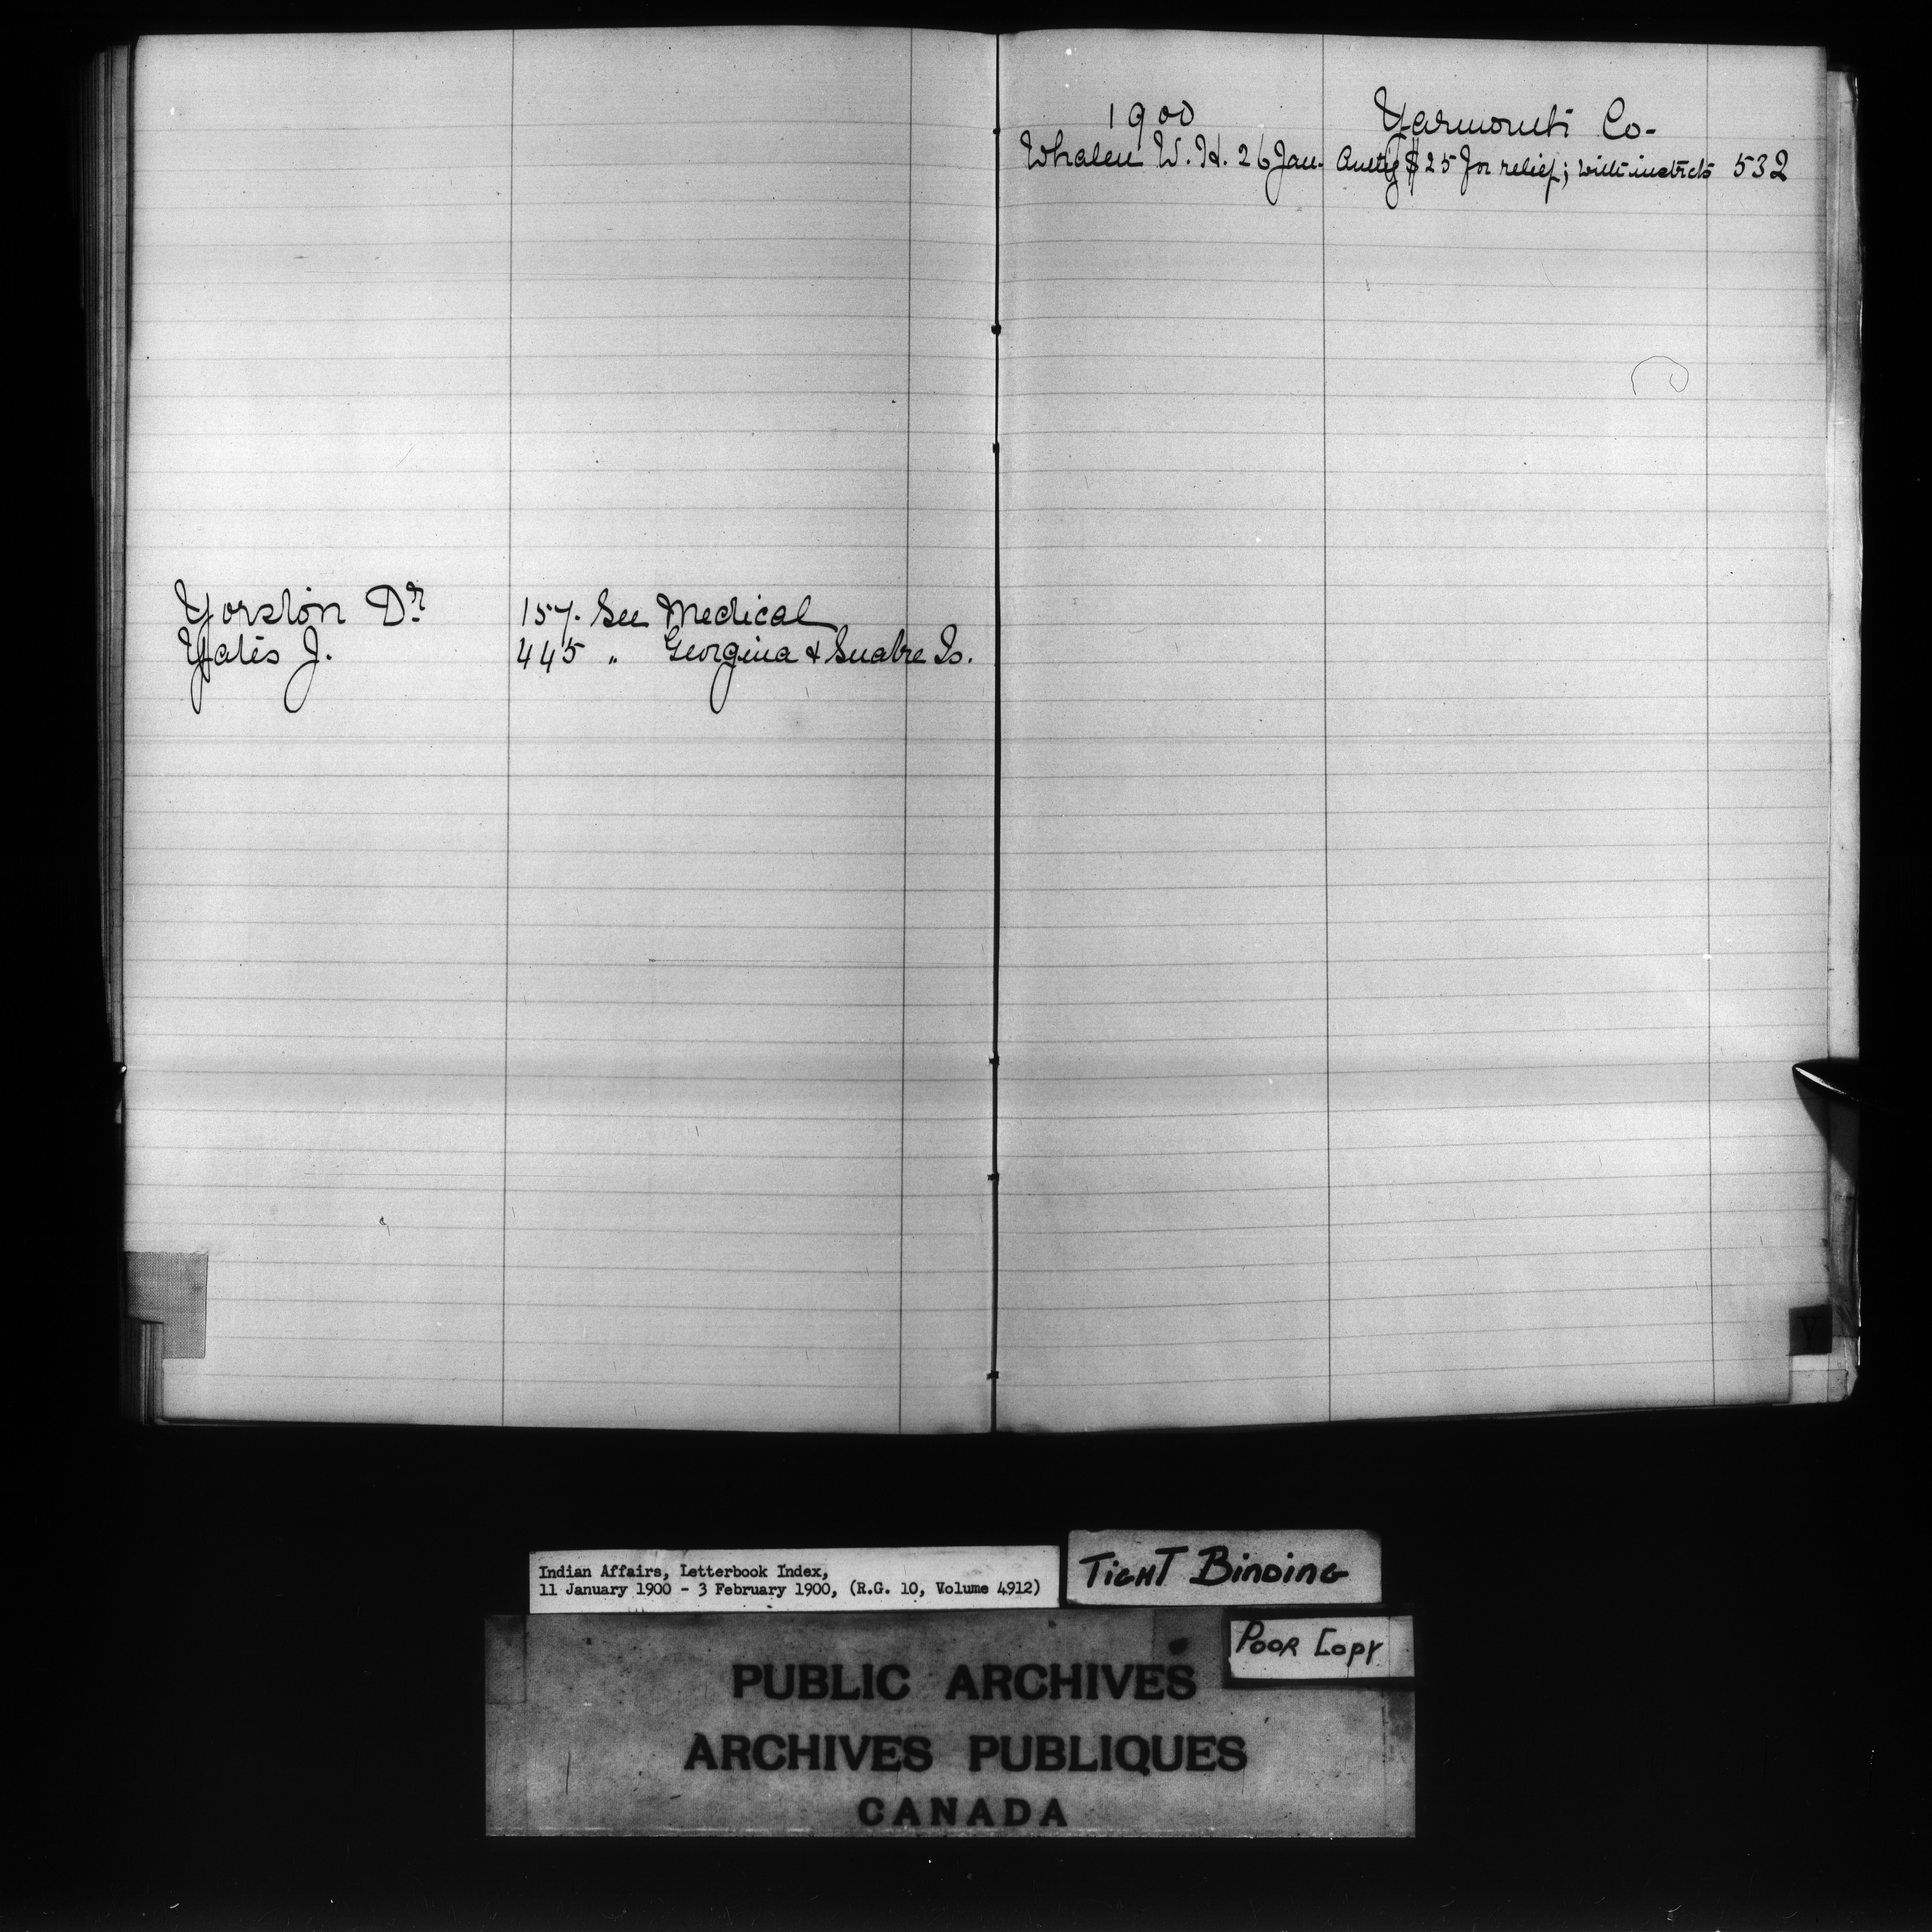 Yorston Dr 157. See Medical
Yates J. 445 " Georgina & Snake Is.
1900 Yarmouth Co-
Whalen W. H. 26 Jan. $25 for relief; with instrcts 532
Y
Indian Affairs, Letterbook Index,
11 January 1900 - 3 February 1900, (R.G. 10, Volume 4912)
TIGHT BINDING
POOR COPY
PUBLIC ARCHIVES
ARCHIVES PUBLIQUES
CANADA